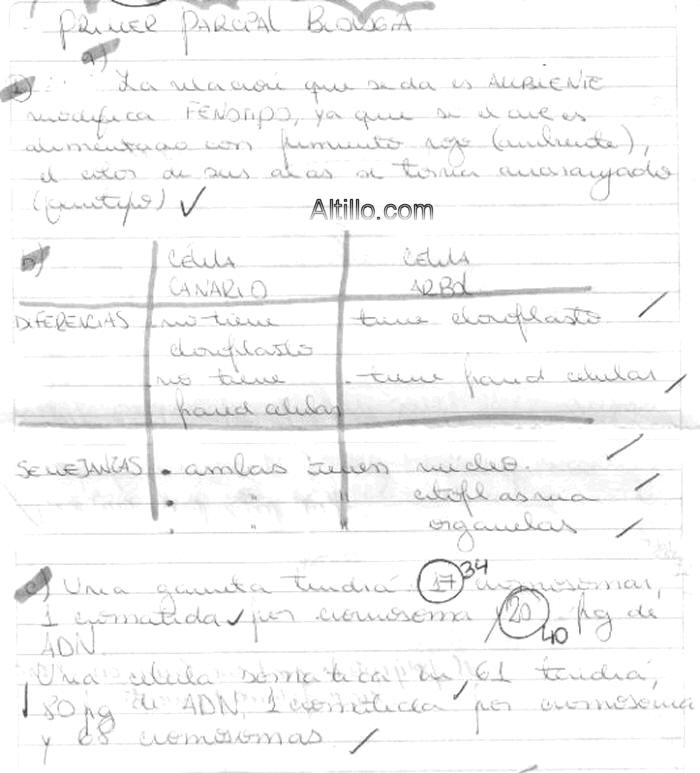 PRIMER PARCIAL BIOLOGÍA
a)
1) La relación que se da es AMBIENTE
modifica FENOTIPO, ya que si el ave es
alimentada con pimiento rojo (ambiente),
el color de sus alas se torna anaranjado
(fenotipo) ✓
Altillo.com
b) CÉLULA CANARIO CÉLULA ARBOL
DIFERENCIAS no tiene cloroplasto tiene cloroplasto
no tiene pared celular tiene pared celular
SEMEJANZAS • ambas tienen núcleo.
• " " citoplasma
• " " organelas
c) Una gameta tendrá 17 34 cromosomas,
1 cromátida ✓ por cromosoma y 20 pg de
40
ADN.
Una célula somática en G1 tendrá
80 pg de ADN, 1 cromátida ✓ por cromosoma
y 68 cromosomas